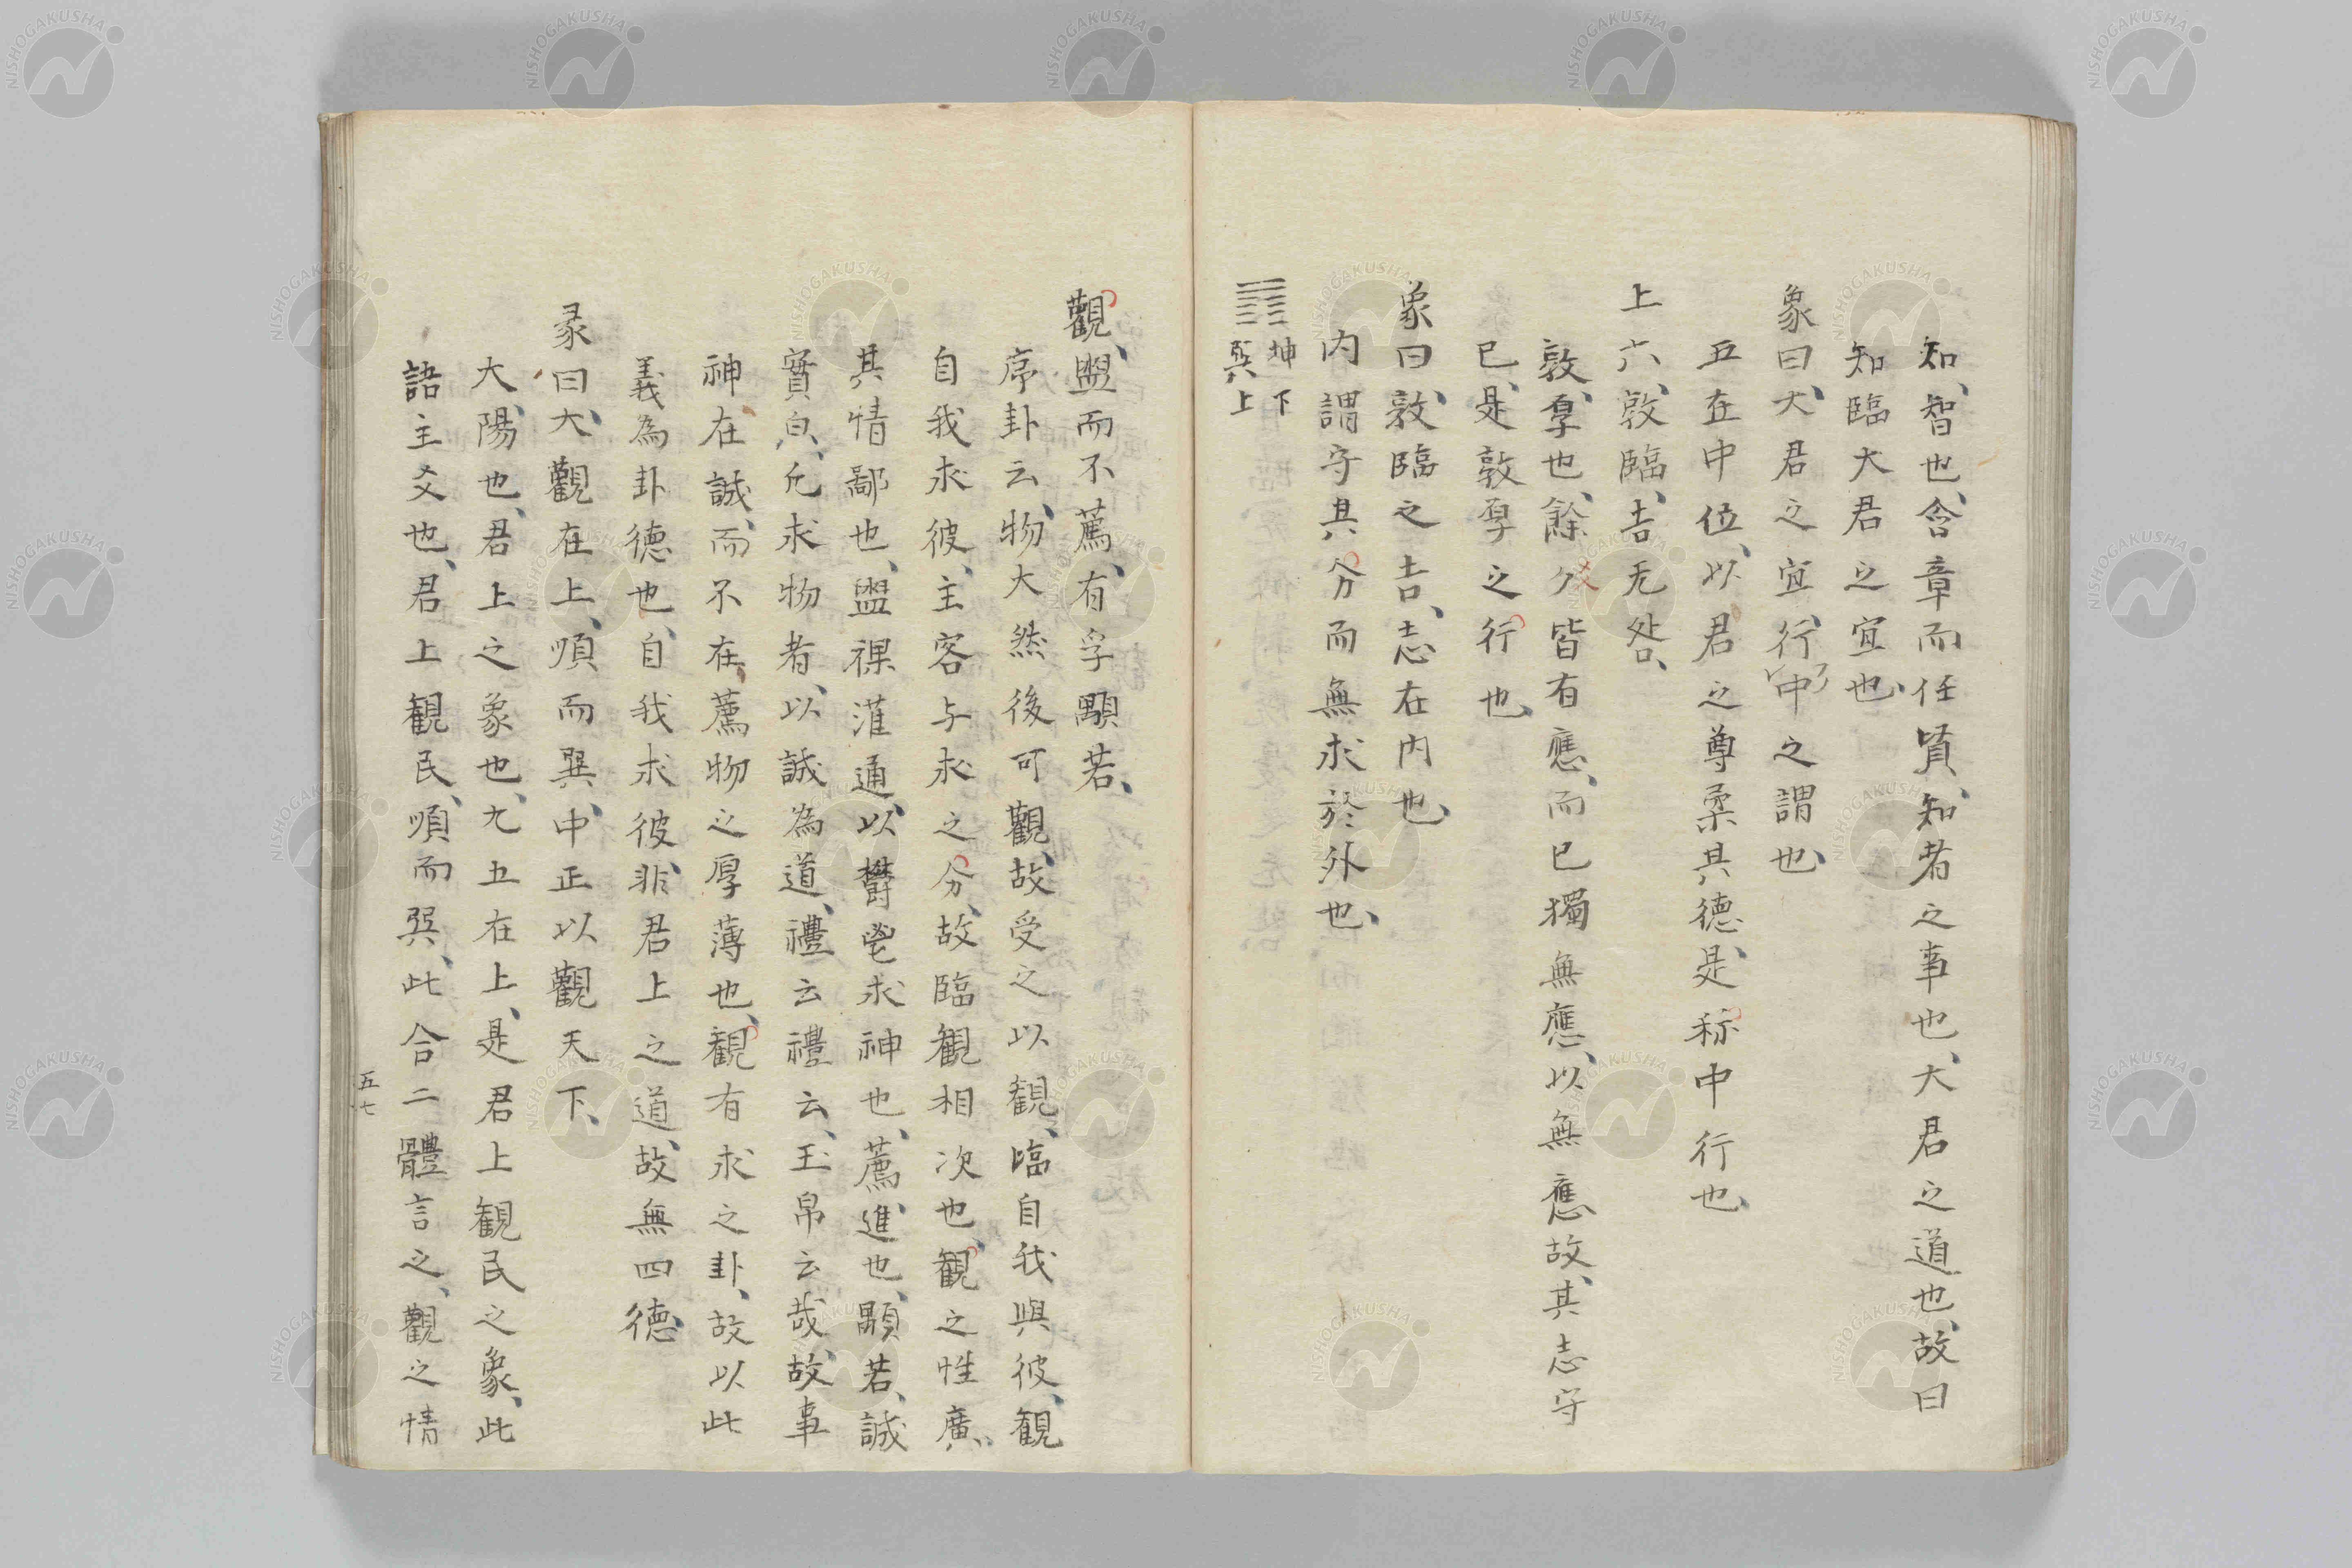 知、智也、含章而任賢、知者之事也、大君之道也、故曰
知臨大君之宜也、
象曰、大君之宜、行中之謂也、
五在中位、以君之尊柔其德、是称中行也、
上六、敦臨、吉无咎、
敦、厚也、餘爻皆有應、而已獨無應、以無應故、其志守
已、是敦厚之行也、
象曰、敦臨之吉、志在内也、
内謂守其分而無求於外也、
坤下
巽上
觀、盥而不薦、有孚顒若、
序卦云、物大然後可觀、故受之以観、臨自我與彼、観
自我求彼、主客与求之分、故臨観相次也、観之性廣、
其情鄙也、盥祼灌通、以欝鬯求神也、薦、進也、顒若、誠
實皃、凢求物者、以誠為道、禮云禮云、玉帛云哉、故事
神在誠、而不在薦物之厚薄也、観有求之卦、故以此
義為卦德也、自我求彼、非君上之道、故無四德、
彖曰、大觀在上、順而巽、中正以觀天下、
大、陽也、君上之象也、九五在上、是君上観民之象、此
語主爻也、君上観民、順而巽、此合二體言之、觀之情
五七
NISHOGAKUSHA